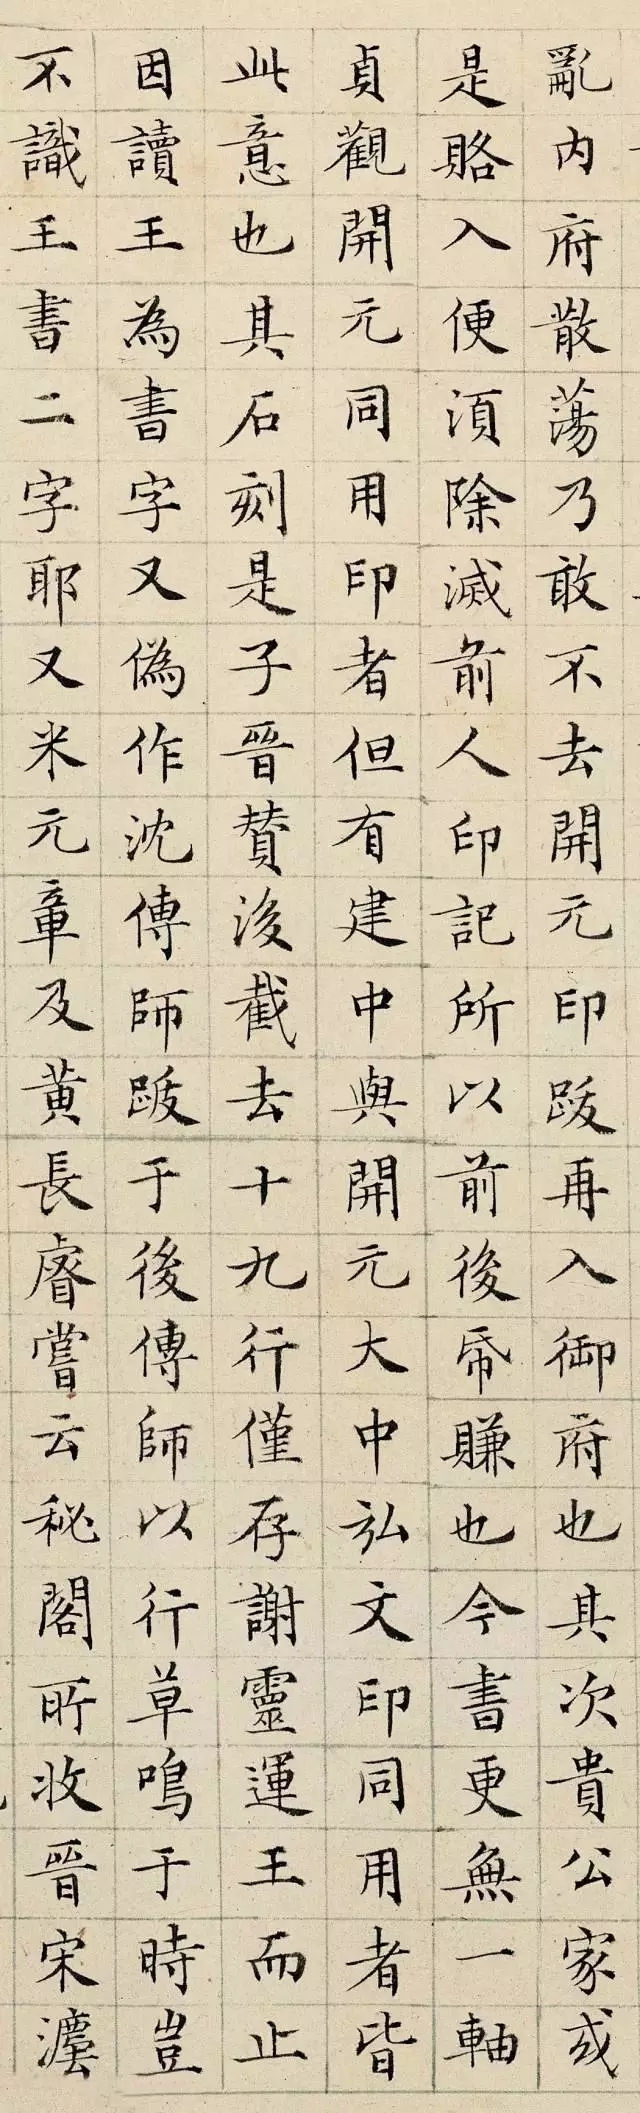 亂内府散蕩乃敢不去開元印跋再入御府也其次貴公家或
是賂入便湏除滅前人印記所以前後帋賺也今書更無一軸
貞觀開元同用印者但有建中與開元大中弘文印同用者皆
此意也其石刻是子晉賛後截去十九行僅存謝靈運王而止
因讀王為書字又偽作沈傳師跋于後傳師以行草鳴于時豈
不識王書二字耶又米元章及黄長睿嘗云秘閣所收晉宋灋